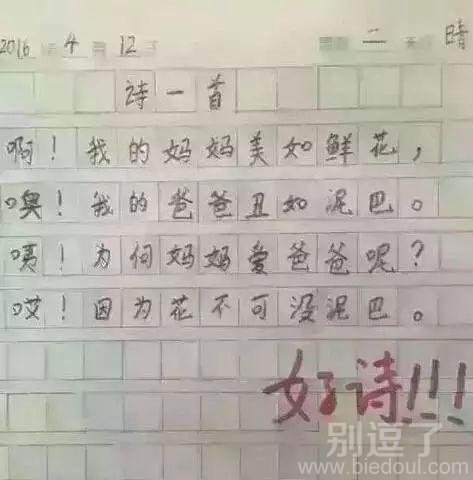 2016 年 4 月 12 日 星期 二 天气 晴
诗一首
啊！我的妈妈美如鲜花，
噢！我的爸爸丑如泥巴。
咦！为何妈妈爱爸爸呢？
哎！因为花不可没泥巴。
好诗!!!
别逗了
www.biedoul.com